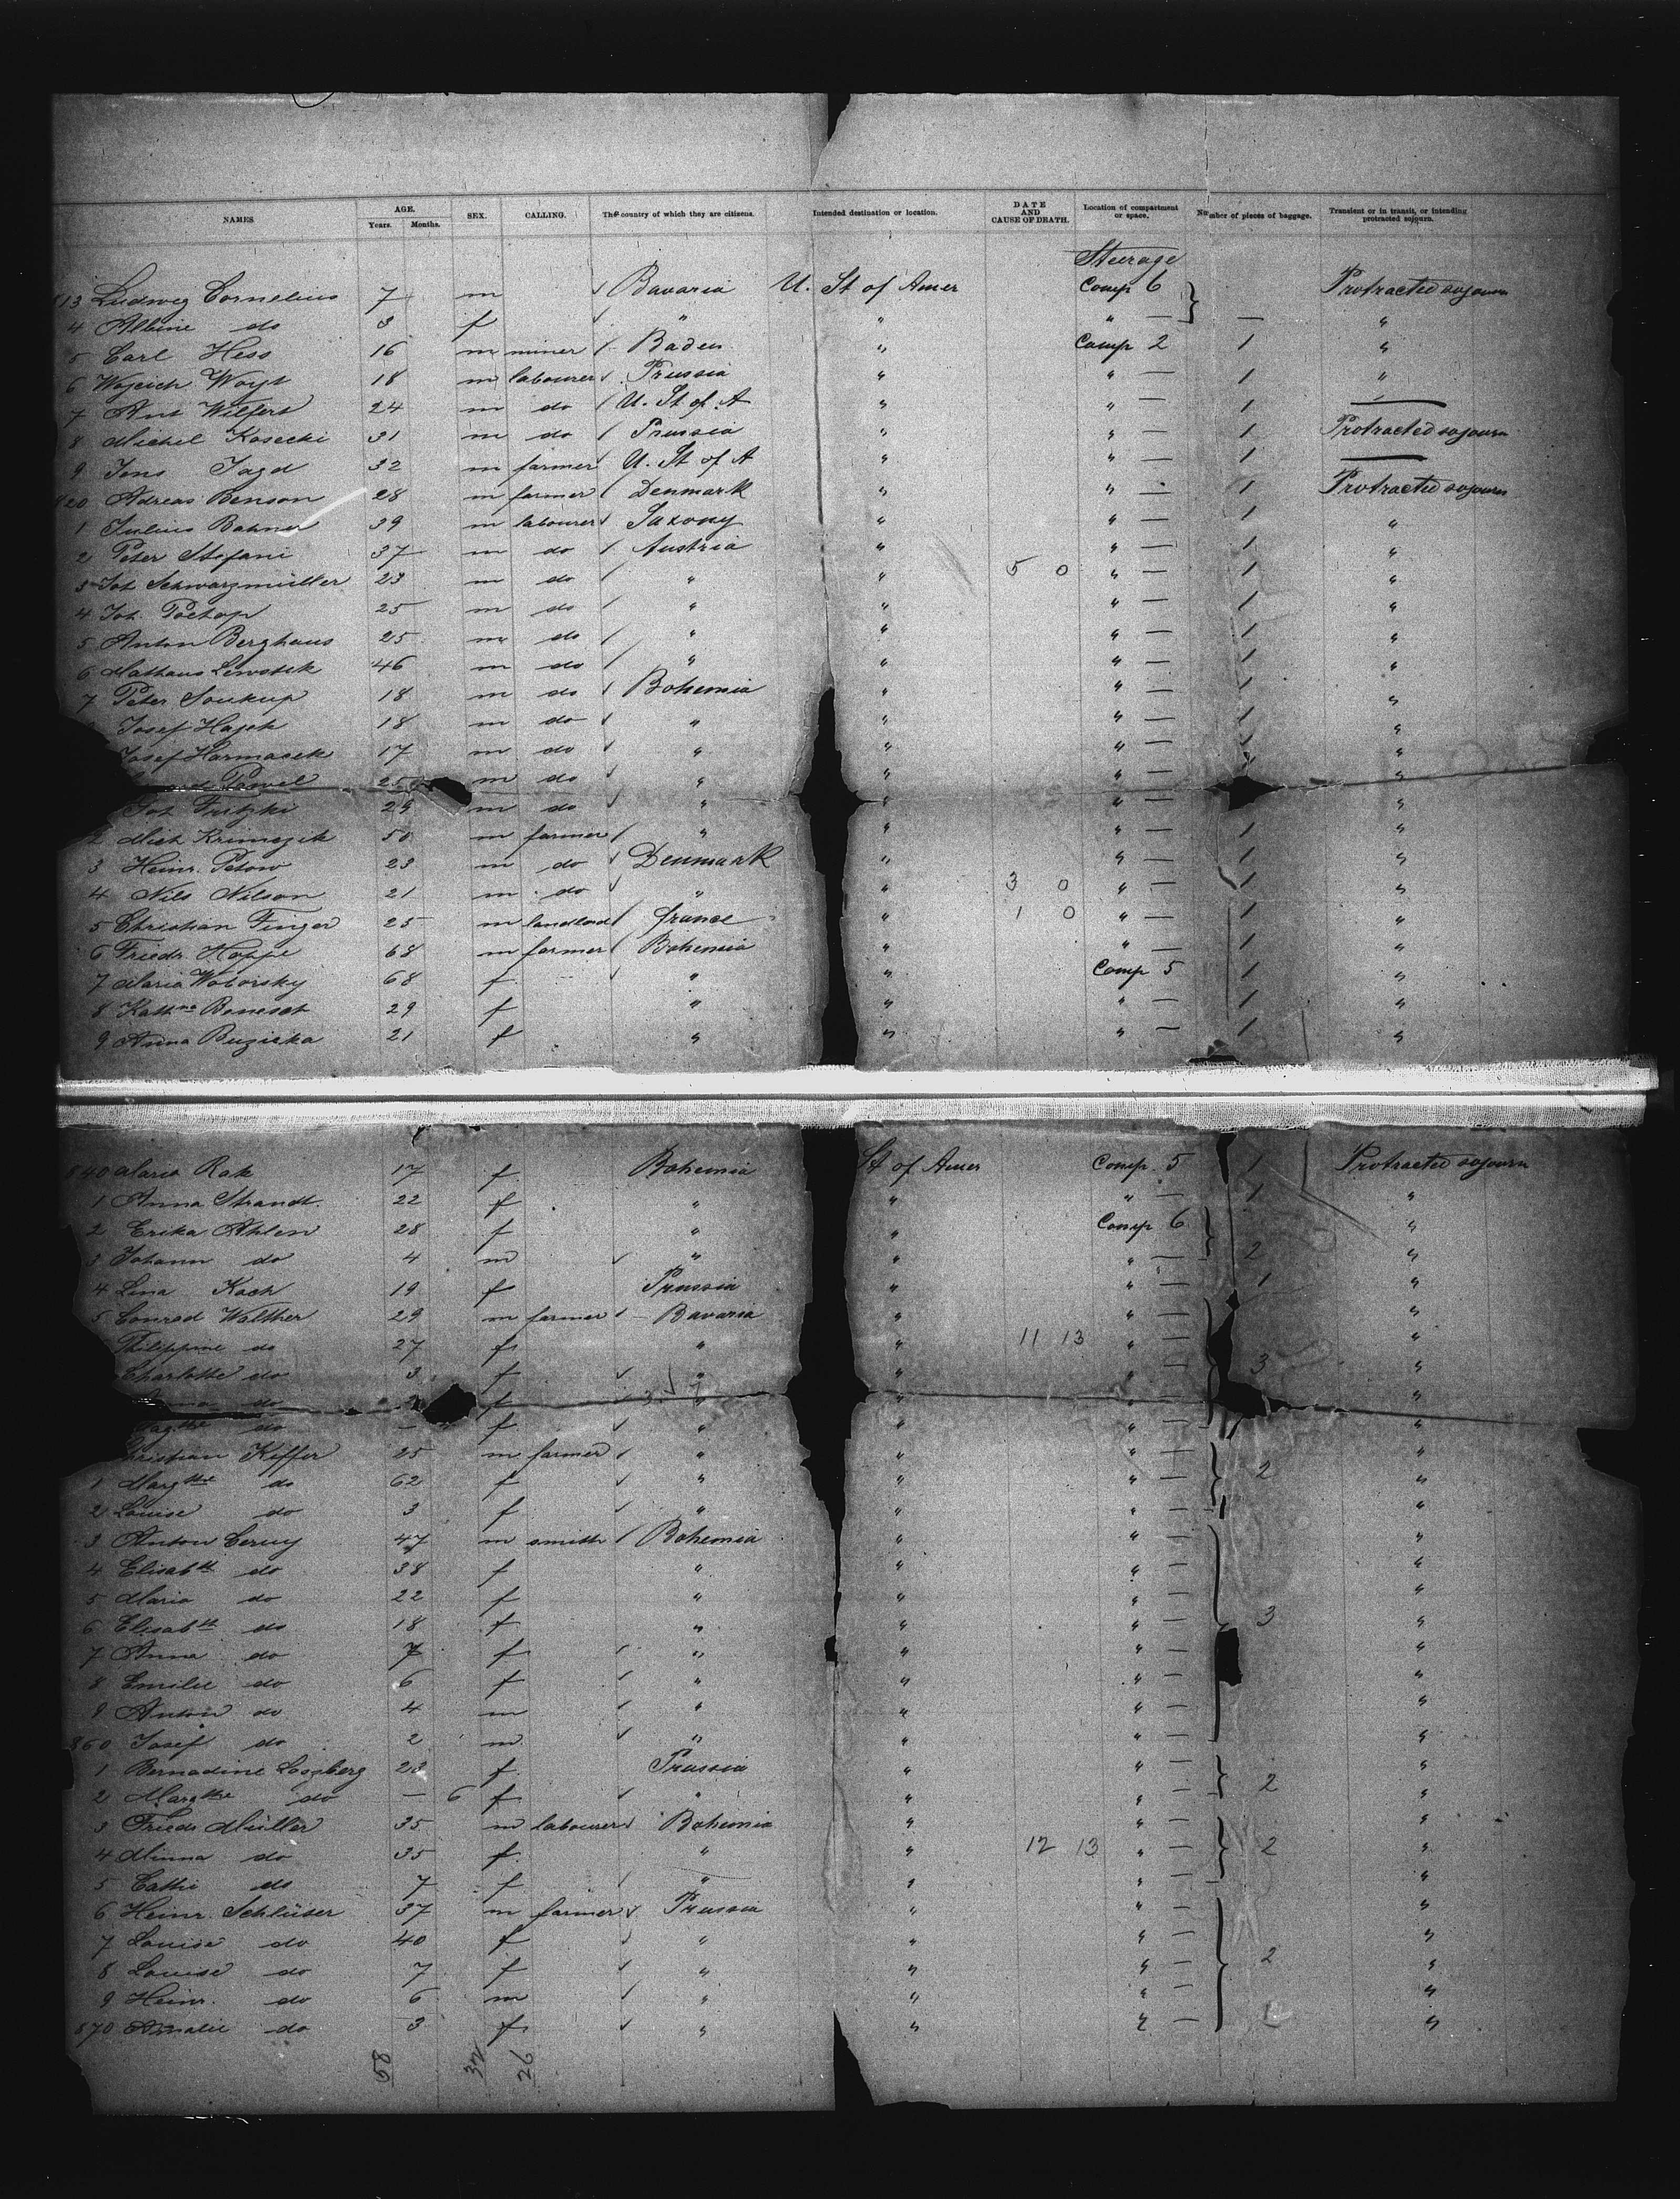 NAMES AGE. Years. Months. SEX. CALLING. The country of which they are citizens. Intended destination or location. DATE AND CAUSE OF DEATH. Location of compartment or space. Number of pieces of baggage. Transient or in transit, or intending protracted sojourn.
Steerage
813 Ludwig Cornelius 7 m Bavaria U. St of Amer Comp 6 Protracted sojourn
4 Albine do 3 f " " " — — "
5 Carl Hess 16 m miner Baden " Comp 2 1 "
6 Wojcich Woyt 18 m labourer Prussia " " — 1 "
7 Ant Wilfert 24 m do U. St of A " " — 1 —
8 Michel Kosecki 31 m do Prussia " " — 1 Protracted sojourn
9 Jens Jagd 32 m farmer U. St of A " " — 1 —
820 Adreas Benson 28 m farmer Denmark " " — 1 Protracted sojourn
1 Julius Bahner 39 m labourer Saxony " " — 1 "
2 Peter Stefani 37 m do Austria " " — 1 "
3 Joh Schwarzmüller 23 m do " " 5 0 " — 1 "
4 Joh. 25 m do " " " — 1 "
5 Anton Berghaus 25 m do " " " — 1 "
6 Mathaus 46 m do " " " — 1 "
7 Peter Soukup 18 m do Bohemia " " — 1 "
Josef Hajek 18 m do " " " — 1 "
Josef 17 m do " " " — 1 "
Pawel 25 m do " " " — "
Joh 29 m do " " " — "
2 Mich 50 m farmer " " " — 1 "
3 Heinr. Petow 23 m do Denmark " " — 1 "
4 Nils Nilson 21 m do " " 3 0 " — 1 "
5 Christian Finger 25 m landlord france " 1 0 " — 1 "
6 Friedr Hoppe 68 m farmer Bohemia " " — 1 "
7 Maria Woborsky 68 f " " Comp 5 1 "
8 Kathna Benesch 29 f " " " — 1 "
9 Anna Buzicka 21 f " " " — 1 "
840 Maria Rak 17 f Bohemia St of Amer Comp. 5 1 Protracted sojourn
1 Anna Strandt. 22 f " " " — 1 "
2 Erika Ahlen 28 f " " Comp 6 "
3 Johann do 4 m " " " — 2 "
4 Lina Koch 19 f Prussia " " — 1 "
5 Conrad Walther 29 m farmer Bavaria " " — "
Philippine do 27 f " " 11 13 " "
Charlotte do 3 f " " " — 3 "
do f " " " — "
do — f " " " — "
Christian Kiffer 25 m farmer " " " — "
1 Margthe do 62 f " " " — 2 "
2 Louise do 3 f " " " — "
3 Anton Cerny 47 m smith Bohemia " " — "
4 Elisabth do 38 f " " " — "
5 Maria do 22 f " " " — "
6 Elisabth do 18 f " " " — 3 "
7 Anna do 7 f " " " — "
8 Emilie do 6 f " " " — "
9 Anton do 4 m " " " — "
860 Josef do 2 m " " " — "
1 Bernadine 23 f Prussia " " — "
2 Margthe do — 6 f " " " — 2 "
3 Friedr Müller 35 m labourer Bohemia " " — "
4 Minna do 35 f " " 12 13 " — 2 "
5 Cathi do 7 f " " " — "
6 Heinr. Schlüter 37 m farmer Prussia " " — "
7 Louise do 40 f " " " — "
8 Louise do 7 f " " " — 2 "
9 Heinr. do 6 m " " " — "
870 Amalie do 3 f " " " — "
58 32 26